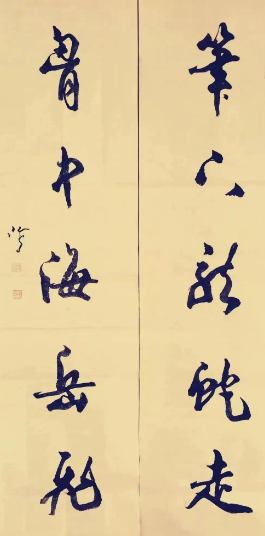 筆下龍蛇走
胷中海岳飛